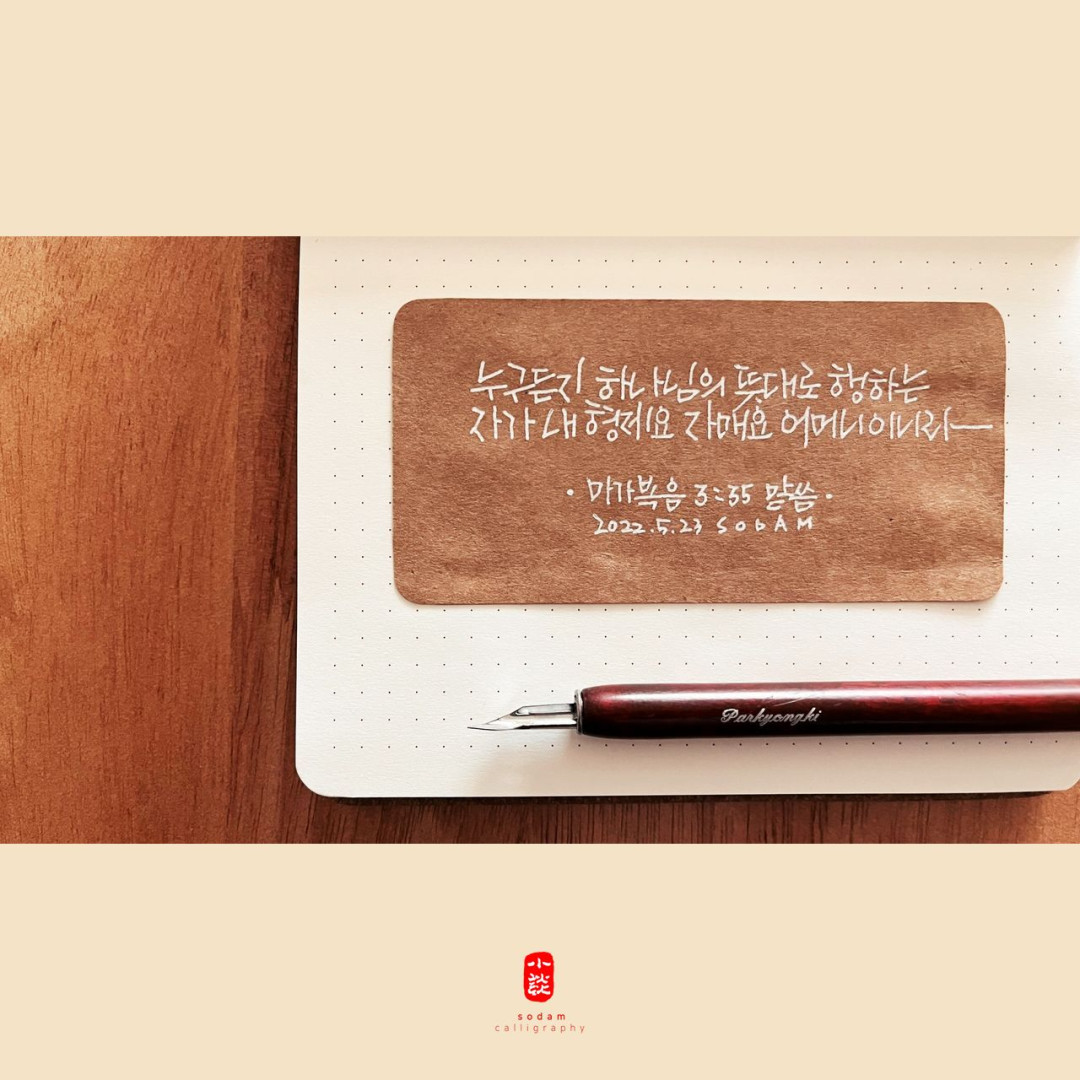 누구든지 하나님의 뜻대로 행하는
자가 내 형제요 자매요 어머니이니라
· 마가복음 3:35 말씀 ·
2022.5.23 SODAM
Parkyongki
小談
sodam
calligraphy